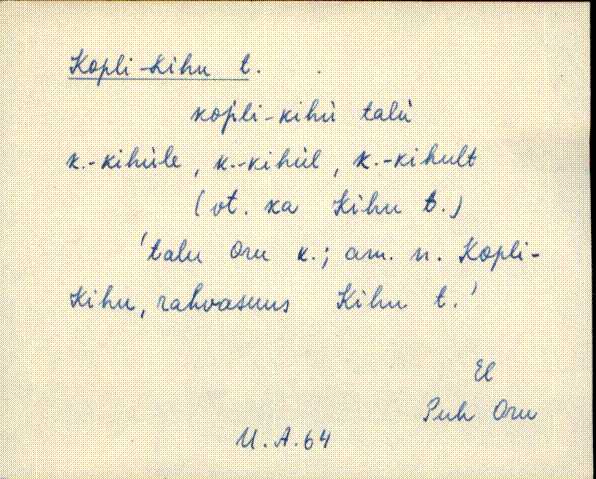 Kopli-Kihu t.
kopli-kihù talù
k.-kihùle, k.-kihùl, k.-kihult
(vt. ka Kihu t.)
'talu Oru k.; am. n. Kopli-
Kihu, rahvasuus Kihu t.'
El
Puh Oru
U.A.64